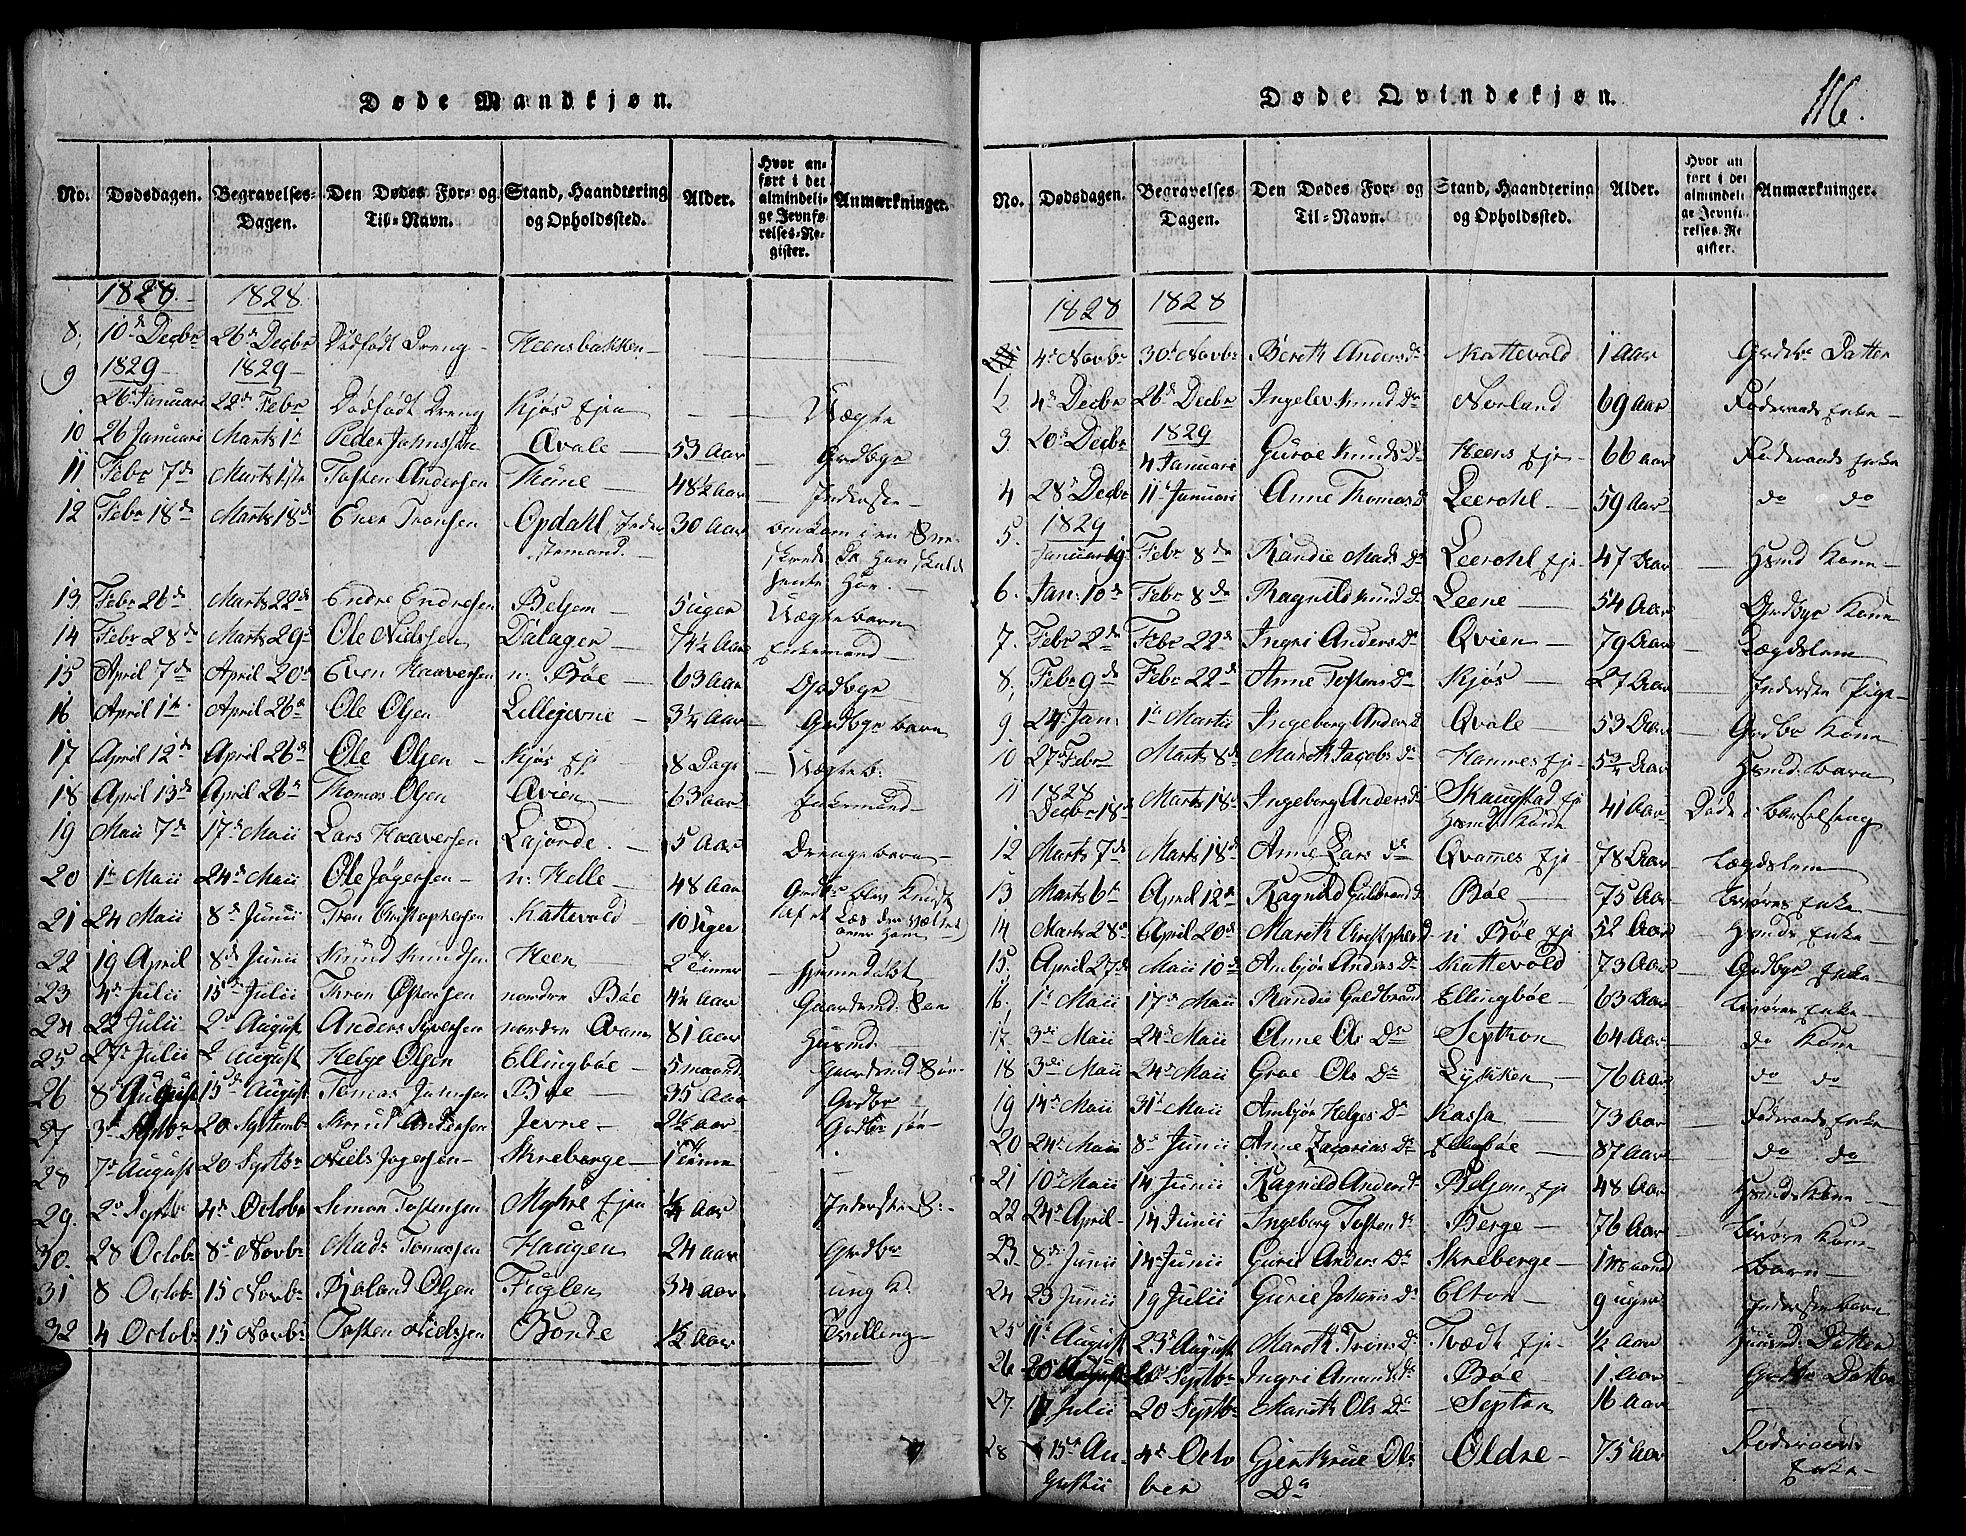 Døde Mandkjøn.
No. Dødsdagen. Begravelses-Dagen. Den Dødes For- og Til-Navn. Stand, Haandtering og Opholdssted. Alder. Hvor anført i det almindelige Jevnførelses-Register. Anmærkninger.
1828 1828
8. 10de Decbr 26de Decbr Dødfødt Dreng Heensbakken
1829 1829
9 26de Januari 22de Febr Dødfødt Dreng Kjøs Ejen Uægte
10 26 Januari Marts 1te Peder Johnssen Qvale 53 Aar Grdbgr
11 Febr 7de Marts 1ste Tosten Andersen Thune 48½ Aar Inderste
12 Febr 18de Marts 18de Ener Tronsen Opdahl Inderstemand 30 Aar omkom i en Sneeskrede da han skulde hente Høe
13 Febr 26de Marts 22de Endre Endresen Belsem 5 uger Uægte barn
14 Febr 28de Marts 29de Ole Nielssen Dalager 74½ Aar Enkemand
15 April 7de April 20de Even Haaversen n. Bøe 63 Aar Grdbgr
16 April 1te April 26de Ole Olsen Lillejevne 3¼ Aar Grdbgr barn
17 April 12de April 26de Ole Olsen Kjøs Ej 8 Dage Uægte b.
18 April 13de April 26de Thomas Olsen Qvien 63 aar Enkemand
19 Maii 7de 17de Maii Lars Haaversen Lajorde 5 Aar Drengebarn
20 1te Maii 24de Maii Ole Jøgersen n. Helle 48 Aar Grdbr
21 24 Maii 8de Junii Tron Christophersen Kattevold 10 Uger
22 19 April 8de Junii Knud Knudsen Heen 2 Timer Hjemedøbt
23 4de Julii 15de Julii Thron Østensen nordre Bøe 4½ Aar Gaardmd Søn
24 22 Julii 2de August Anders Syversen nordre Qvam 81 aar Husmd
25 27de Julii 2 August Helge Olsen Ellingbøe 5 maaned Gaardmd Søn
26 8 August 15de August Tomas Johnsen Bøe 35 Aar Grdbr
27 3de Septbr 20 Septembr Knud Andersen Jevne 2½ aar Grdbr søn
28 7de August 20 Septbr Niels Jøgersen Skreberge 1 Time
29. 2de Septb 4de Octobr Simon Tostensen Myhre Ejen ¼ Aar Inderste S.
30. 28 Octob 8de Novbr Mads Tomassen Haugen 24 aar Grdbr
31 8 Octob 15 Novbr Bjoland Olsen Fuglen 34 aar ung K.
32 4 Octob 15 Novbr Tosten Nielssen Bonde ½ Aar Tvilling
Døde Qvindekjøn.
116.
No. Dødsdagen. Begravelses Dagen. Den Dødes For- og Til-Navn. Stand, Haandtering og Opholdssted. Alder. Hvor anført i det almindelige Jevnførelses-Register. Anmærkninger.
1828 1828
1 4de Novbr 30te Novbr Bereth Andersdr Kattevold 1 Aar Grdbr Datter
2 4de Decbr 26de Decbr Ingelev Knudsdr Norland 69 Aar Føderaads Enke
3. 20de Decbr 1829 4 Januari Guroe Knudsdr Heens Eje 66 aar Føderaads Enke
4 28de Decbr 11te Januari Anne Thomasdr Leerohl 59 Aar do do
5. 1829 Januari 19 Febr 8de Randie Madsdr Leerohl Eje 47 Aar Hsmd Kone
6. Jan. 10de Febr 8de Ragnild Knudsdr Leene 54 Aar Grdbgr Kone
7. Febr 2de Febr 22de Ingri Andersdr Qvien 79 Aar Lægdslem
8. Febr 9de Febr 22de Anne Tostensdr Kjøs 27 Aar Inderste Pige
9. 24 Jan. 1te Martii Ingeborg Andersdr Qvale 53 Aar Grdbr Kone
10 27 Febr Marts 8de Mareth Jacobsdr Hamnes Ej 5¾ Aar Hsmd. barn
11 1828 Decbr 18de Marts 18de Ingeborg Andersdr Skaugstad Eje Hsmds Kone 41 Aar Døde i Barselseng
12 Marts 7de Marts 18de Anne Larsdr Qvamés Eje 78 Aar Lægdslem
13 Marts 6te April 12de Ragnild Guldbrandsdr Bøe 75 Aar Enke
14 Marts 28de April 20de Mareth Christophersd n. Bøe Eje 52 Aar Hsmds Enke
15. April 27de Maii 10de Ambjør Andersdr Kattevold 73 Aar Grdbgr Enke
16. 1te Maii 17de Maii Randie Guldbrand Ellingbøe 63 Aar Enke
17. 3de Maii 24de Maii Anne Olsdr Septron 64 Aar do Kone
18 3de Maii 24de Maii Groe Ols Dr Lykken 76 Aar do do
19 14de Maii 31te Maii Ambjør Helgesdr Kassa 73 aar Føderaads Enke
20 24de Maii 8de Junii Anne Zacariasdr Ellingbøe 87 Aar do do
21 10de Maii 14 Junii Ragnild Andersdr Belsem Eje 48 Aar Hsmds Kone
22 24de April 14 Junii Ingeborg Tostendr Berge 76 Aar Kone
23 8de Junii 14de Junii Gurie Andersdr Skreberge 1 maaned Barn
24 23 Junii 19 Julii Gurie Johannsdr Elton 9 uger Inderste barn
25 11te August 23de August Mareth Trons dr Tvedt Eje ½ aar Huusmd Datter
26 20 August 20 Septbr Ingri Amundsdr Bøe 1 aar Grdbr Datter
27 17 Julii 20 Septbr Mareth Ols Dr Septon 16 Aar
28 15de Augustii 4de October Gjertrue Ols Dr Oldre 75 Aar Føderaads Enke